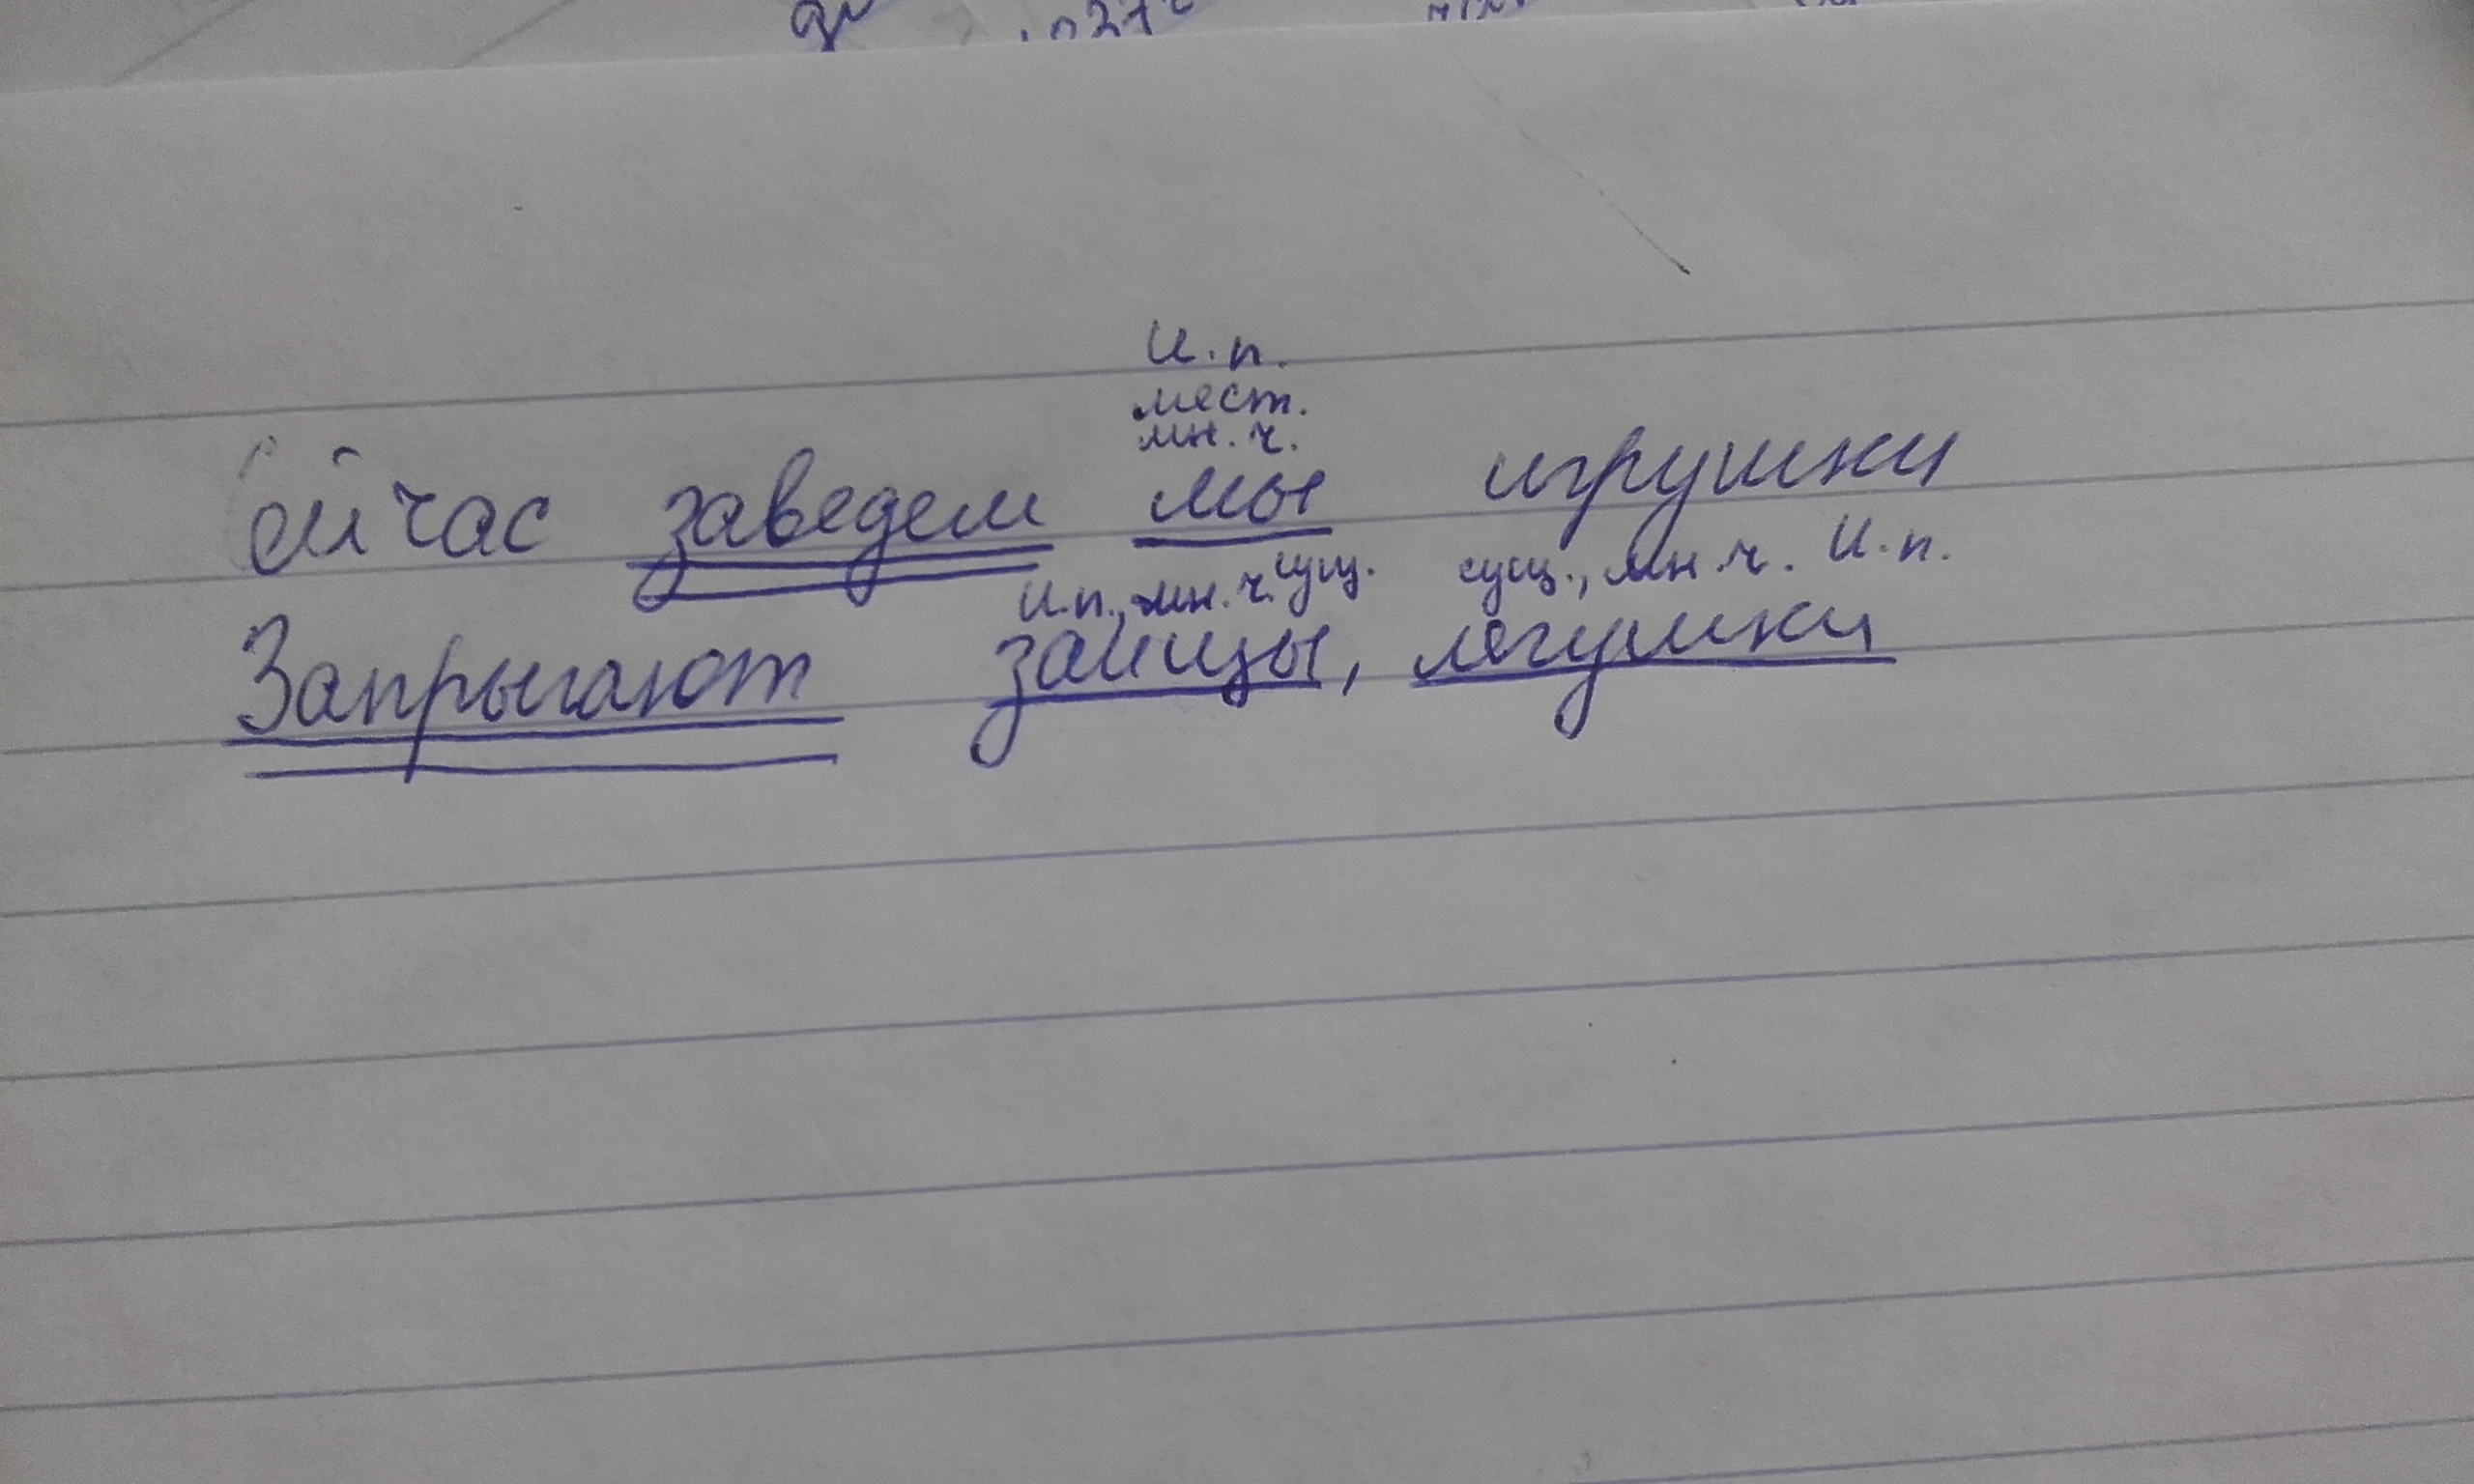 И.п.
мест.
мн.ч.
ейчас заведем мы игрушки
И.п., мн.ч. сущ. сущ., мн.ч. И.п.
Запрыгают зайцы, лягушки